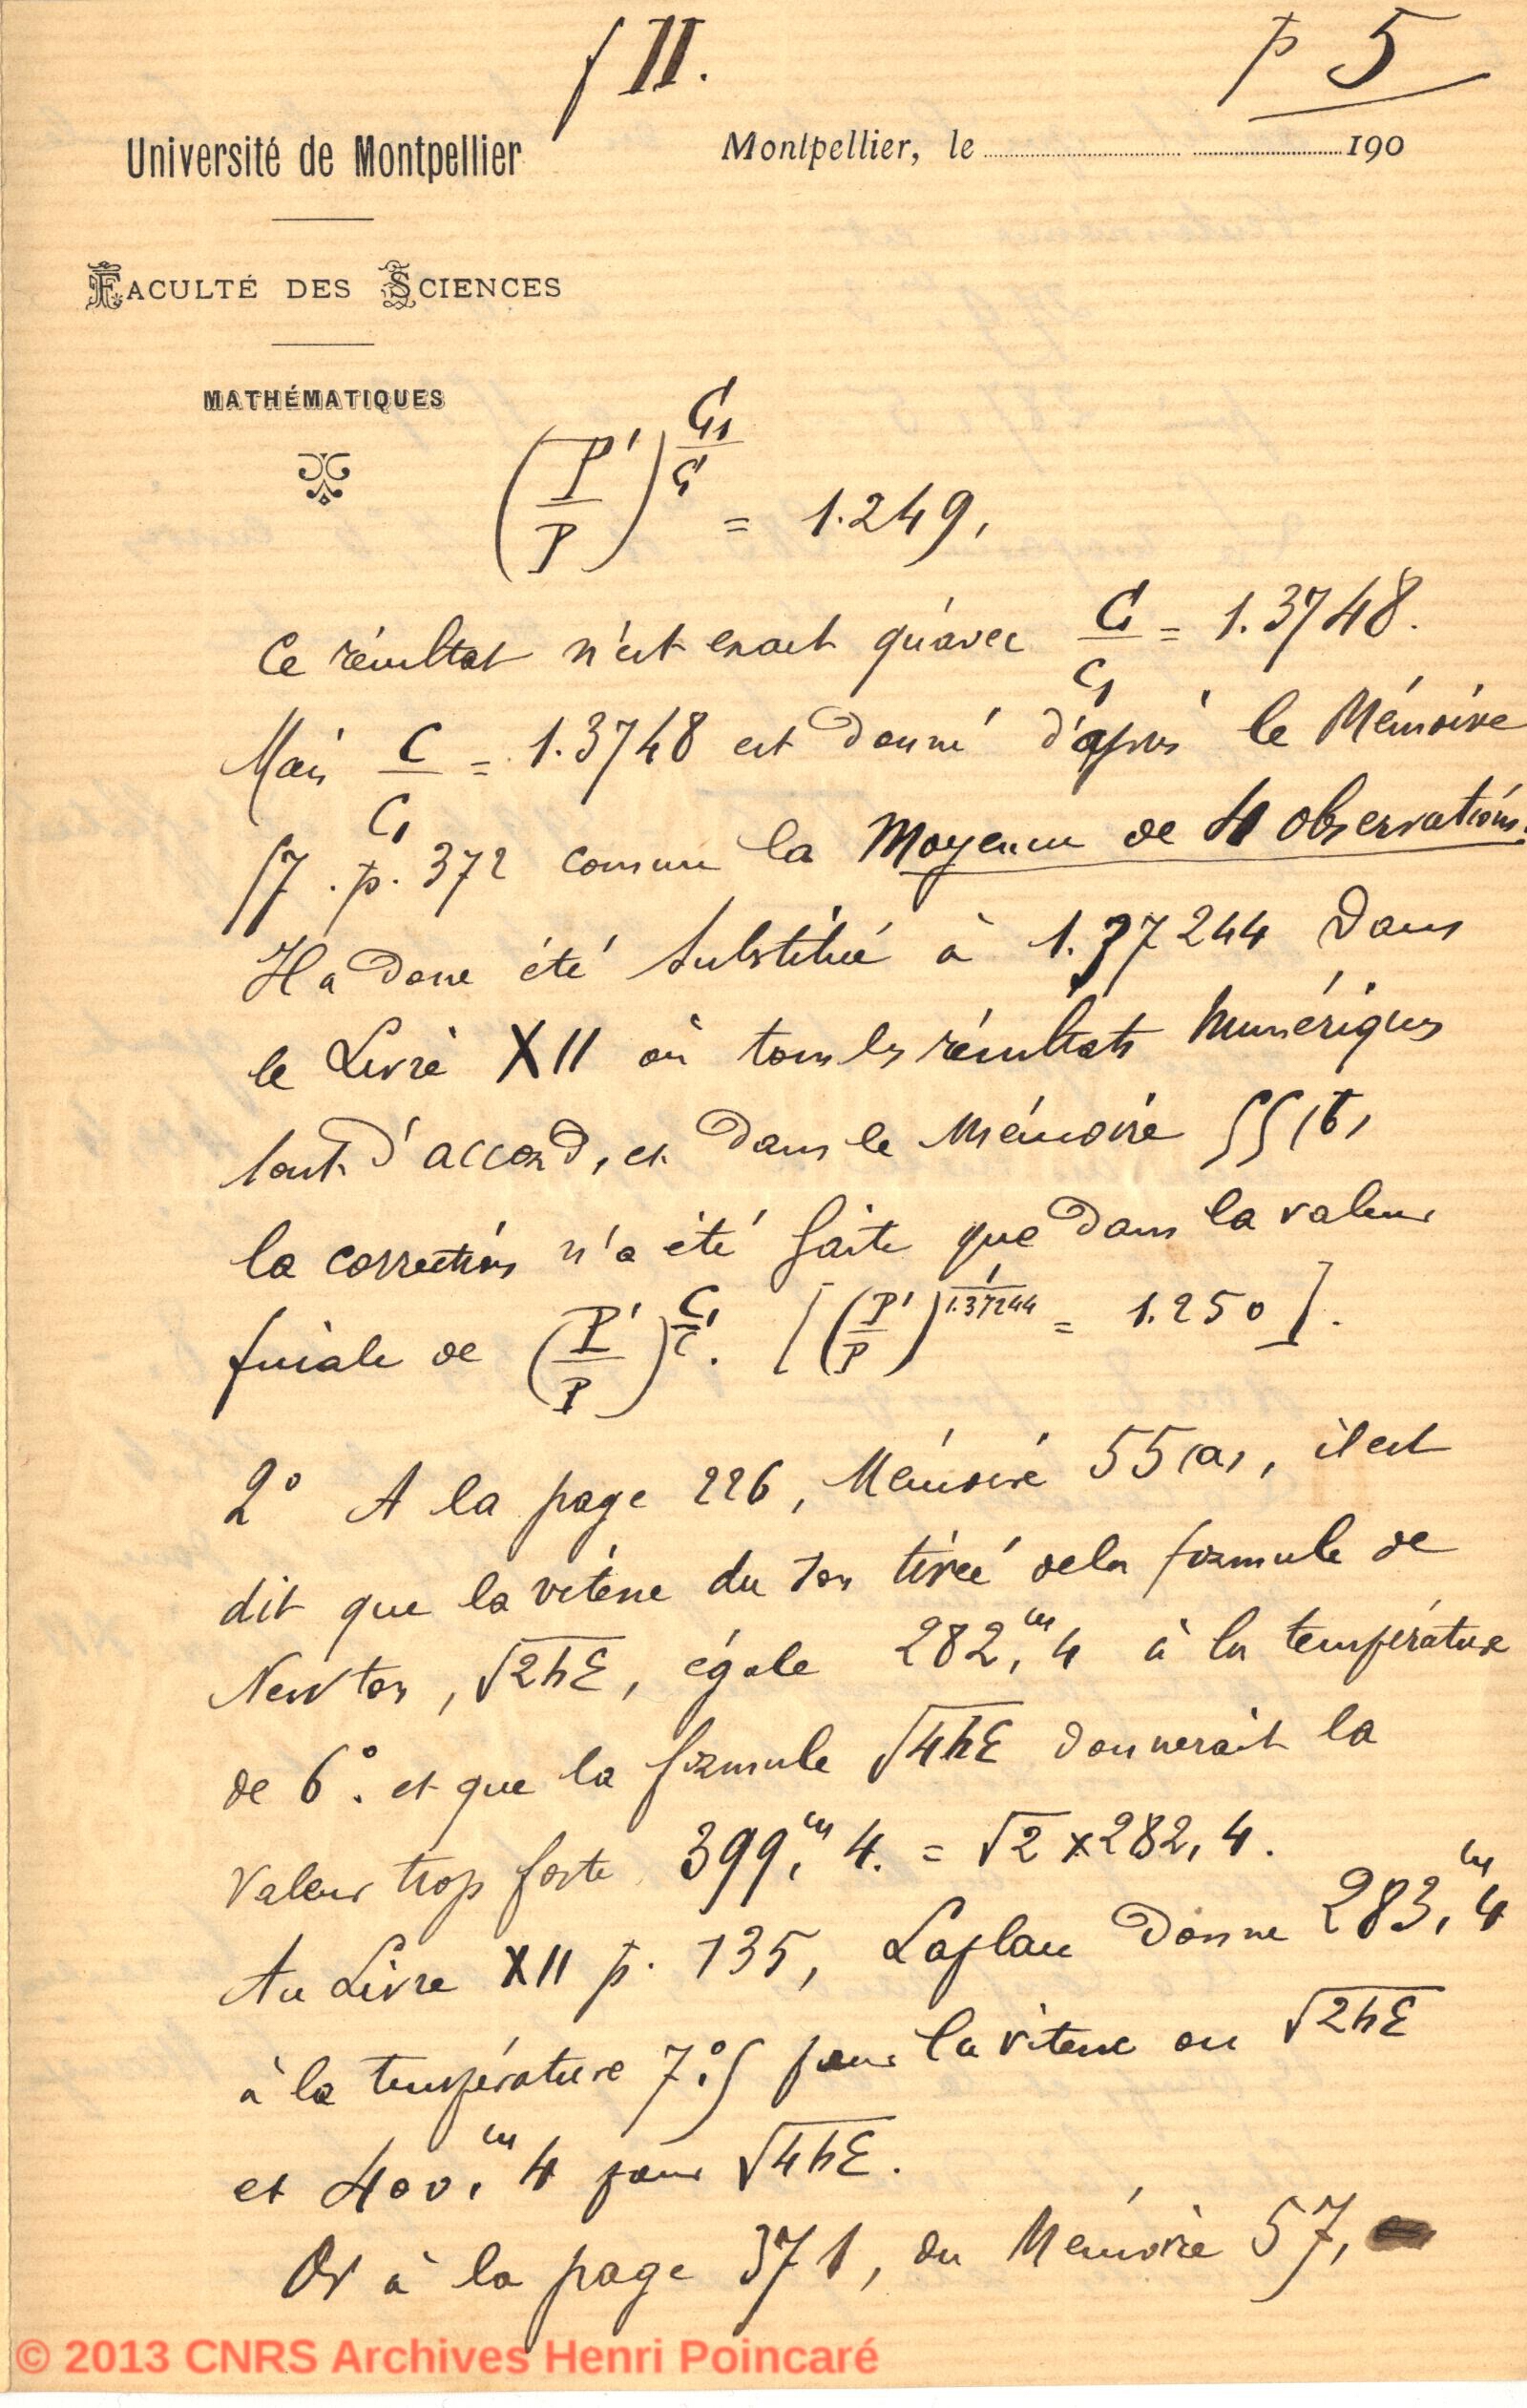 f II.
p 5
Université de Montpellier
Montpellier, le 190
FACULTÉ DES SCIENCES
MATHÉMATIQUES
(P'/P)^{C₁/C} = 1.249,
Ce résultat n'est exact qu'avec C/C₁ = 1.3748.
Mais C/C₁ = 1.3748 est donné d'après le Mémoire
57. p. 372 comme la Moyenne de 4 observations.
Il a donc été substitué à 1.37244 dans
le Livre XII où tous les résultats numériques
sont d'accord, et dans le Mémoire 55(b)
la correction n'a été faite que dans la valeur
finale de (P'/P)^{C₁/C}. [(P'/P)^{1/1.37244} = 1.250].
2° A la page 226, Mémoire 55(a), il est
dit que la vitesse du son tirée de la formule de
Newton, √2hε, égale 282,ᵐ4 à la température
de 6°. et que la formule √4hε donnerait la
valeur trop forte 399,ᵐ4. = √2 × 282,4.
Au Livre XII p. 135, Laplace donne 283,ᵐ4
à la température 7°,5 pour la vitesse ou √2hε
et 400,ᵐ4 pour √4hε.
Or à la page 371, du Mémoire 57,
© 2013 CNRS Archives Henri Poincaré